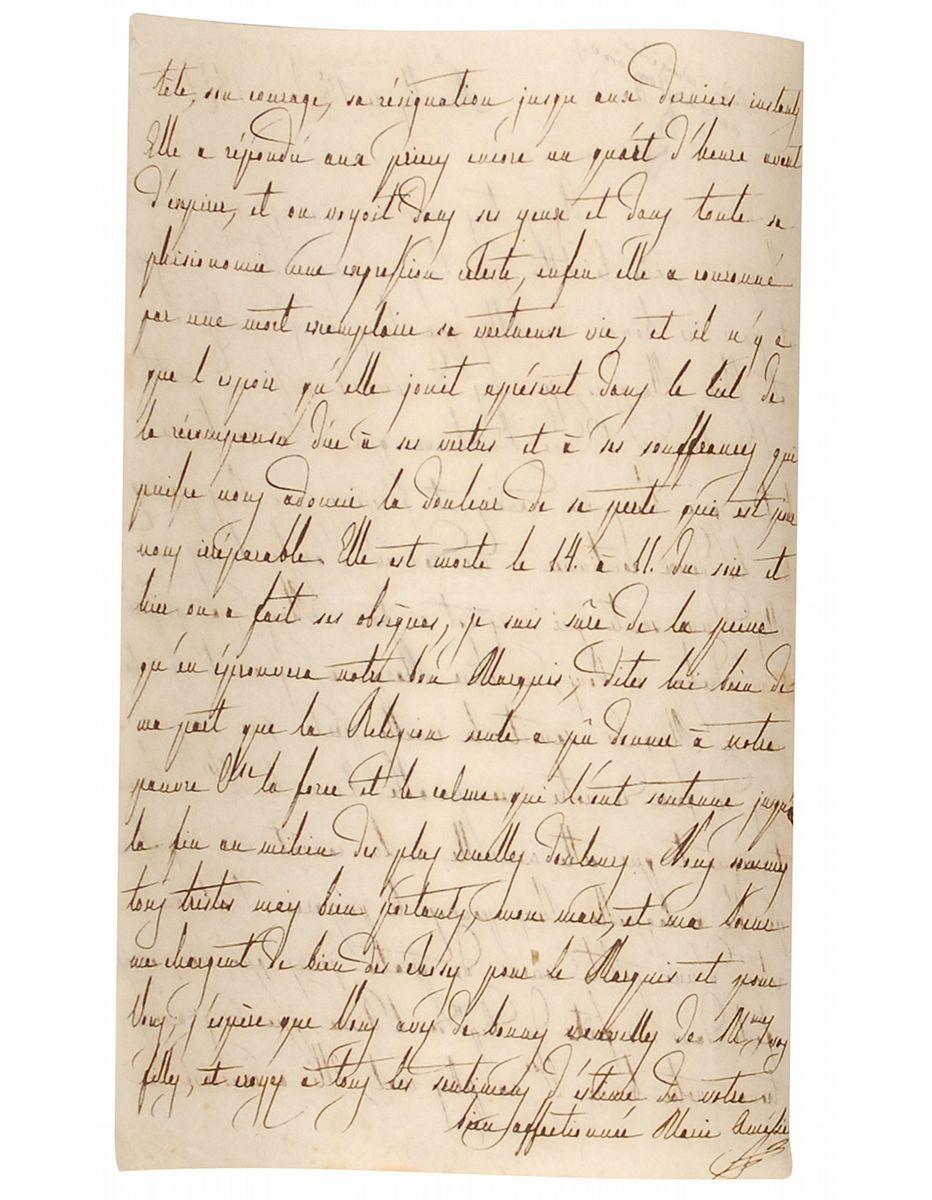 tête, son courage, sa résignation jusqu'aux derniers instants
Elle a répondu aux prieres encore un quart d'heure avant
d'expirer, et on voyoit dans ses yeux et dans toute sa
phisionomie une expression celeste, enfin elle a couronné
par une mort exemplaire sa vertueuse vie, et il n'y a
que l'espoir qu'elle jouit aprésent dans le Ciel de
la récompense dûe à ses vertus et à ses souffrances qui
puisse nous adoucir la douleur de sa perte qui est pour
nous irréparable. Elle est morte le 14. à 11. du soir et
hier on a fait ses obsèques, je suis sûre de la peine
qu'en éprouvera notre bon Marquis, dites lui bien de
ma part que la Religion seule a pû donner à notre
pauvre la force et le calme qui l'ont soutenue jusqu'à
la fin au milieu des plus cruelles douleurs. Nous sommes
tous tristes mais bien portants, mon mari, et ma Soeur
me chargent de bien des choses pour le Marquis et pour
Vous, j'espère que Vous avez de bonnes nouvelles de M.mes vos
filles, et croyez à tous les sentimens d'estime de votre
bien affectionnée Marie Amélie